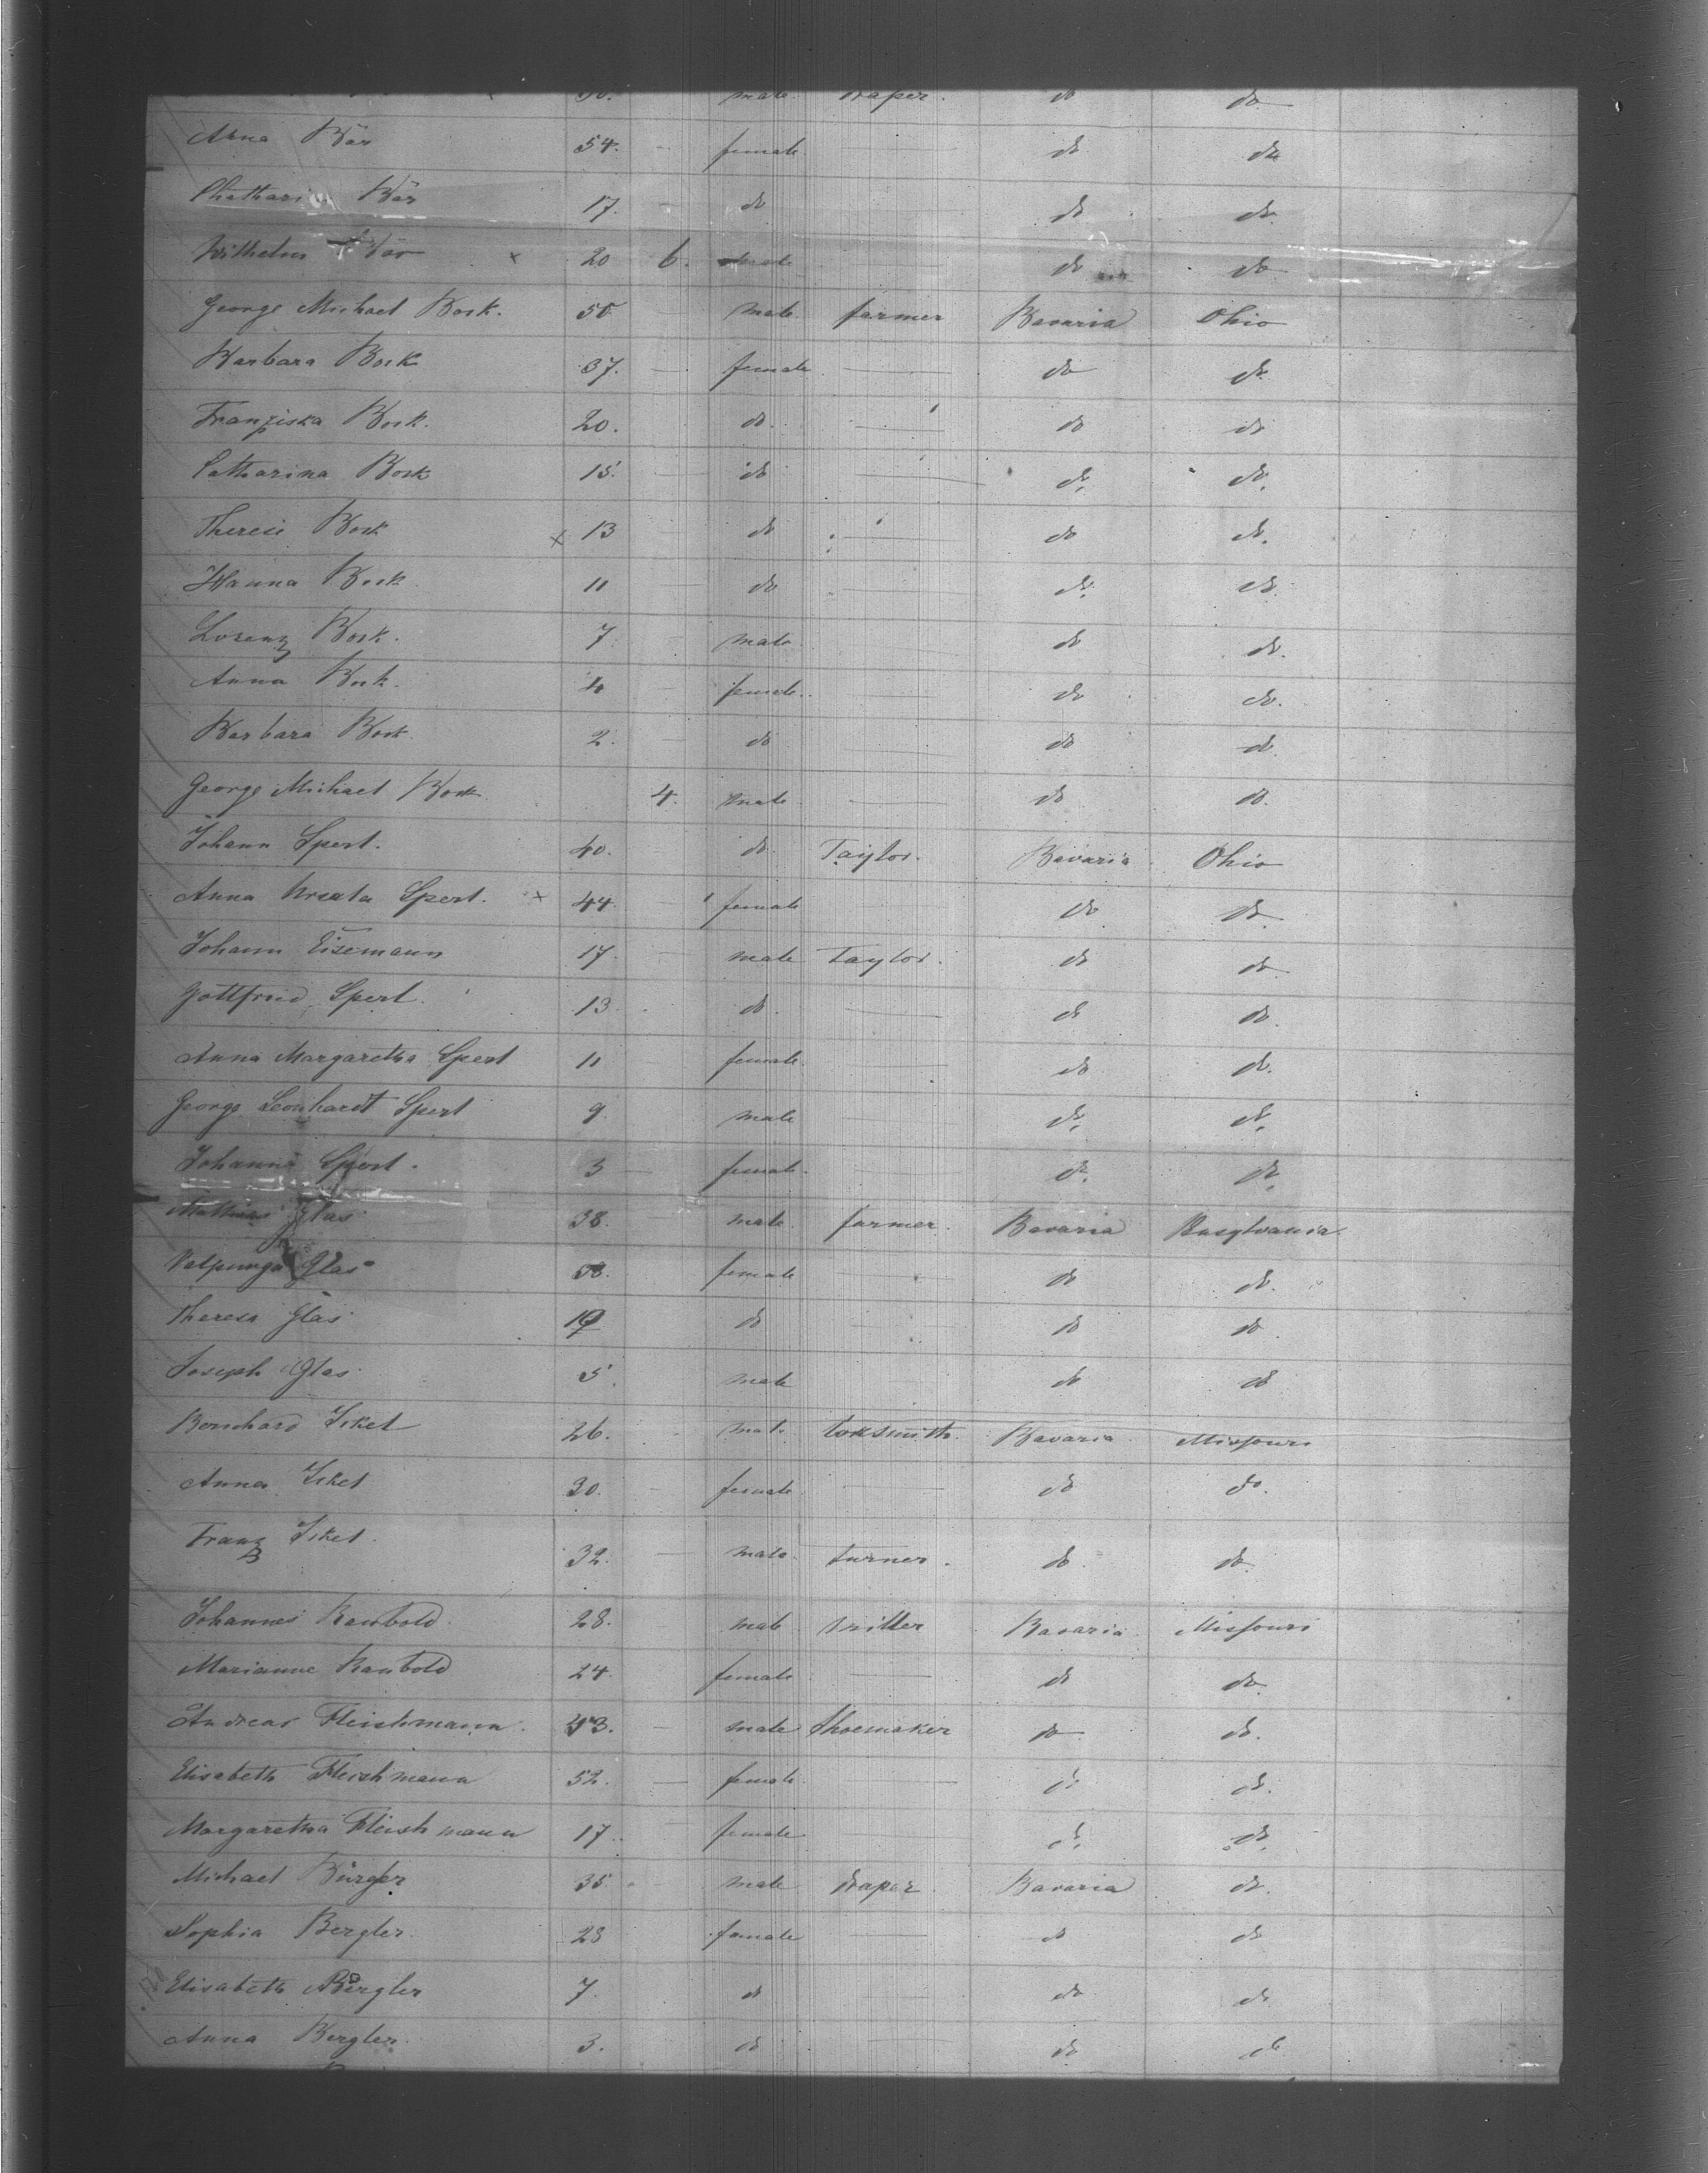 male. draper. do do
Anna Bär 54. female. do do
Chatharina Bär 17. do do do.
Wilhelm Bär x 20 6. male do do
George Michael Bock. 50 male. farmer Bavaria Ohio
Barbara Bock 37. female. do do.
Franziska Bock. 20. do. do do
Catharina Bock 15. do do. do.
Therese Bock x 13 do do do.
Hanna Bock 11 do do. do.
Lorenz Bock. 7. male. do do.
Anna Bock. 4 female. do do.
Barbara Bock. 2. do do do.
George Michael Bock 4. male do do.
Johann Spert. 40. do. Taylor. Bavaria Ohio
Anna Ursula Spert. x 44 female do do
Johann Eisemann 17. male Taylor. do do
Gottfried Spert. 13. do. do do.
Anna Margaretha Spert 11 female. do do.
George Leonhardt Spert 9. male do. do.
Johanna Spert. 3 female. do. do.
Mathias Glas 38. male. farmer. Bavaria Pensylvania.
Valpurga Glas female do do.
Theresa Glas do do do.
Joseph Glas 5. male do do
Bernhard Isket 26. male. loksmith. Bavaria Missouri
Anna Isket 30. female do do.
Franz Isket. 32. male. turner. do. do.
Johannes Raubold 28. male Bavaria. Missouri
Marianne Raubold 24. female. do do.
Andreas Fleishmann. 53. male Shoemaker do do.
Elisabeth Fleishmann 52. female. do do.
Margaretha Fleishmann 17. female do. do.
Michael Bürger 35. male draper Bavaria do.
Sophia Bergler. 28 female do do
Elisabeth Bergler 7. do do do
Anna Bergler. 3. do do do